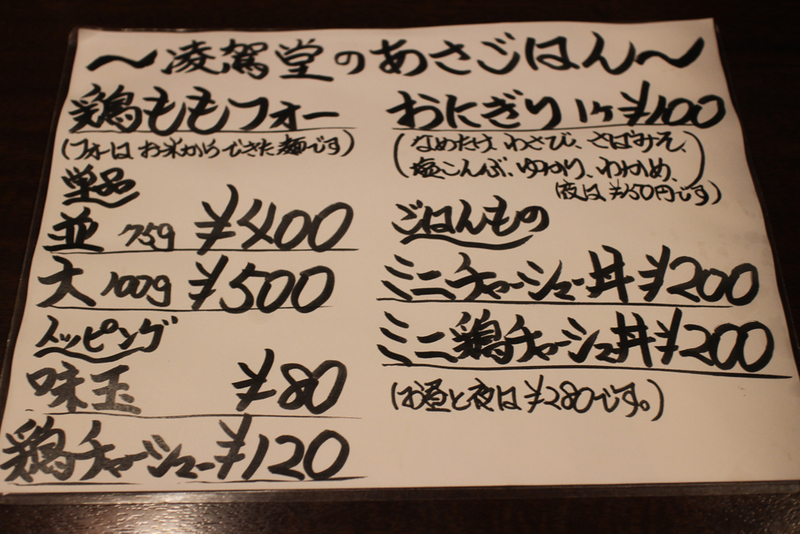 〜凌駕堂のあさごはん〜
鶏ももフォー
(フォーは お米からできた麺です)
単品
並 75g ¥400
大 100g ¥500
トッピング
味玉 ¥80
鶏チャーシュー ¥120
おにぎり 1ケ ¥100
(なめたけ、わさび、さばみそ、
塩こんぶ、ゆかり、わかめ、)
夜は¥150円です)
ごはんもの
ミニチャーシュー丼 ¥200
ミニ鶏チャーシュー丼 ¥200
(お昼と夜は¥280です。)